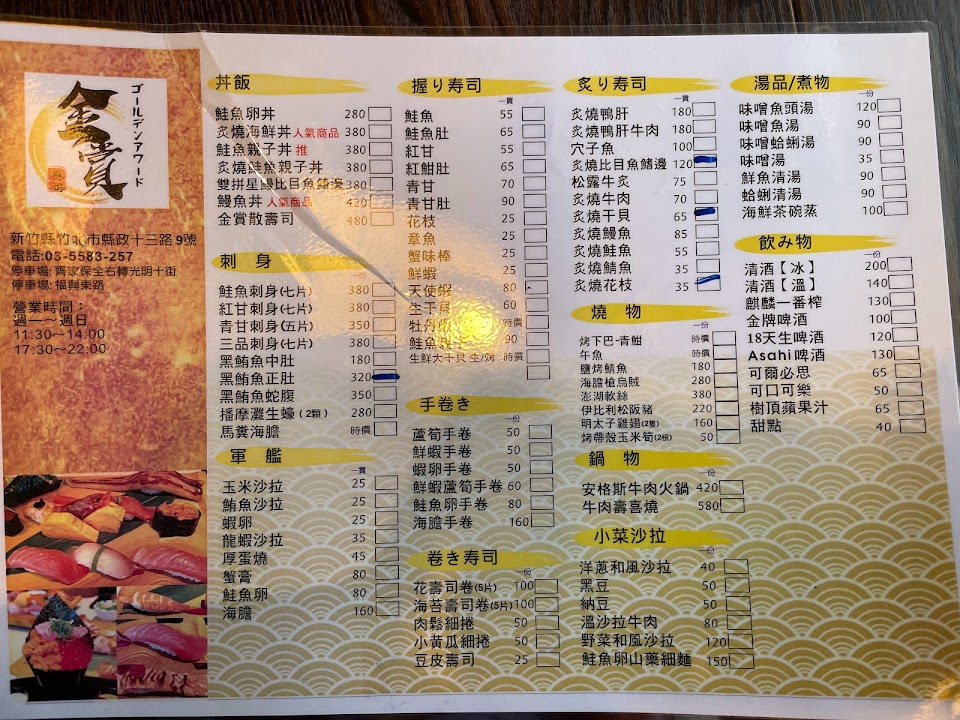 金賞
壽司
ゴールデンアワード
新竹縣竹北市縣政十三路9號
電話:03-5583-257
停車場: 齊家保全右轉光明十街
停車場: 福興東路
營業時間：
週一～週日
11:30～14:00
17:30～22:00
丼飯
鮭魚卵丼 280
炙燒海鮮丼 人氣商品 380
鮭魚親子丼 推 380
炙燒鮭魚親子丼 380
雙拼星鰻比目魚鰭邊 380
鰻魚丼 人氣商品 420
金賞散壽司 480
刺 身
一份
鮭魚刺身(七片) 350
紅甘刺身(七片) 380
青甘刺身(五片) 350
三品刺身(七片) 380
黑鮪魚中肚 180
黑鮪魚正肚 320
黑鮪魚蛇腹 350
播摩灘生蠔(2顆) 280
馬糞海膽 時價
軍 艦
一貫
玉米沙拉 25
鮪魚沙拉 25
蝦卵 25
龍蝦沙拉 35
厚蛋燒 45
蟹膏 80
鮭魚卵 80
海膽 160
握り寿司
一貫
鮭魚 55
鮭魚肚 65
紅甘 55
紅魽肚 65
青甘 70
青甘肚 90
花枝 25
章魚 25
蟹味棒 25
鮮蝦 25
天使蝦 80
生干貝 60
時價
90
生鮮大干貝 生/烤 時價
手巻き
一份
蘆筍手卷 50
鮮蝦手卷 50
蝦卵手卷 50
鮮蝦蘆筍手卷 60
鮭魚卵手卷 80
海膽手卷 160
卷き寿司
一份
花壽司卷(5片) 100
海苔壽司卷(5片) 100
肉鬆細捲 50
小黃瓜細捲 50
豆皮壽司 25
炙り寿司
一貫
炙燒鴨肝 180
炙燒鴨肝牛肉 180
穴子魚 100
炙燒比目魚鰭邊 120
松露牛炙 75
炙燒牛肉 70
炙燒干貝 65
炙燒鰻魚 85
炙燒鮭魚 55
炙燒鯖魚 35
炙燒花枝 35
燒 物
一份
烤下巴-青魽 時價
午魚 時價
鹽烤鯖魚 180
海膽槍烏賊 280
澎湖軟絲 380
伊比利松阪豬 220
明太子雞翅(2隻) 160
烤帶殼玉米筍(2根) 50
鍋 物
一份
安格斯牛肉火鍋 420
牛肉壽喜燒 580
小菜沙拉
一份
洋蔥和風沙拉 40
黑豆 50
納豆 50
溫沙拉牛肉 80
野菜和風沙拉 120
鮭魚卵山藥細麵 150
湯品/煮物
一份
味噌魚頭湯 120
味噌魚湯 90
味噌蛤蜊湯 90
味噌湯 35
鮮魚清湯 90
蛤蜊清湯 90
海鮮茶碗蒸 100
飲み物
一份
清酒【冰】 200
清酒【溫】 140
麒麟一番榨 130
金牌啤酒 100
18天生啤酒 120
Asahi啤酒 130
可爾必思 65
可口可樂 50
樹頂蘋果汁 65
甜點 40